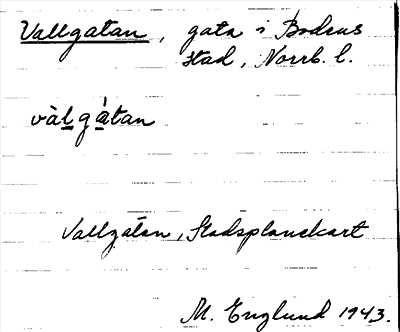 Vallgatan, gata i Bodens
stad, Norrb. l.
vàlgàtan
Vallgatan, Stadsplanekart
M. Englund 1943.